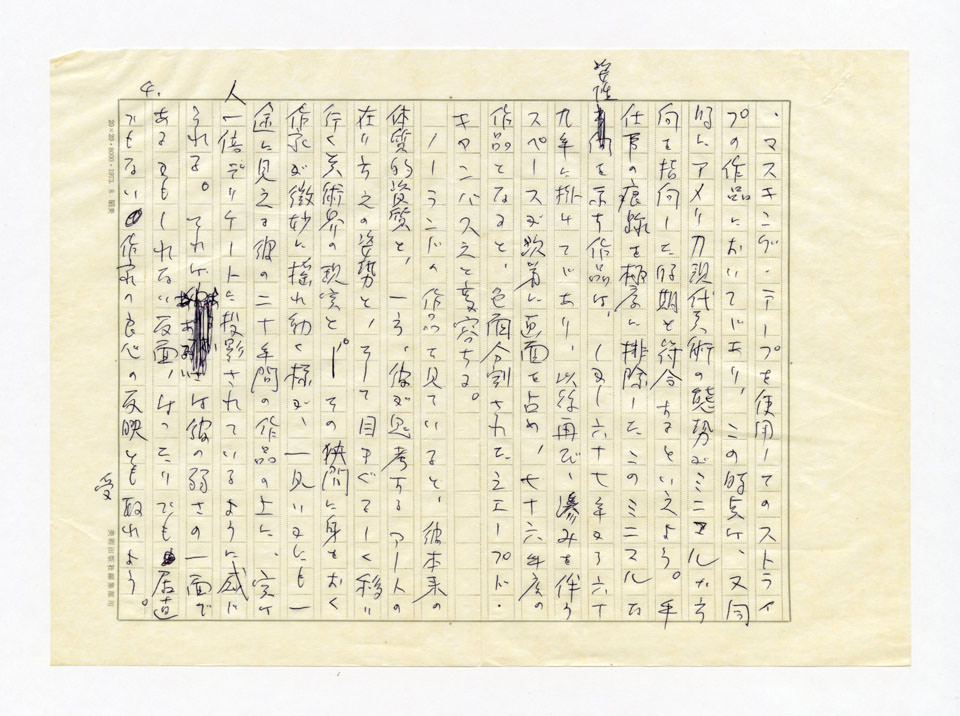 、マスキング・テープを使用してのストライ
プの作品においてであり、この時点は、又同
時にアメリカ現代美術の態勢がミニマルな方
向を指向した時期と符合するといえよう。手
仕事の痕跡を極度に排除したこのミニマルな
特性を示す作品は、一九六七年から六十
九年に掛けてであり、以後再び、滲みを伴う
スペースが次第に画面を占め、七十六年度の
作品となると、色面分割されたシェープド・
キャンバスえと変容する。
ノーランドの作品を見ていると、彼本来の
体質的資質と、一方、彼が思考するアートの
在り方えの姿勢と、そして目まぐるしく移り
行く美術界の現実と──その狭間に身をおく
作家が微妙に揺れ動く様が、一見いかにも一
途に見える彼の二十年間の作品の上に、実は
人一倍デリケートに投影されているように感じ
られる。それは彼の弱さの一面で
あるかもしれない反面、けっしてでも居直
れもない作家の良心の反映とも取れよう。
受
4.
20×20